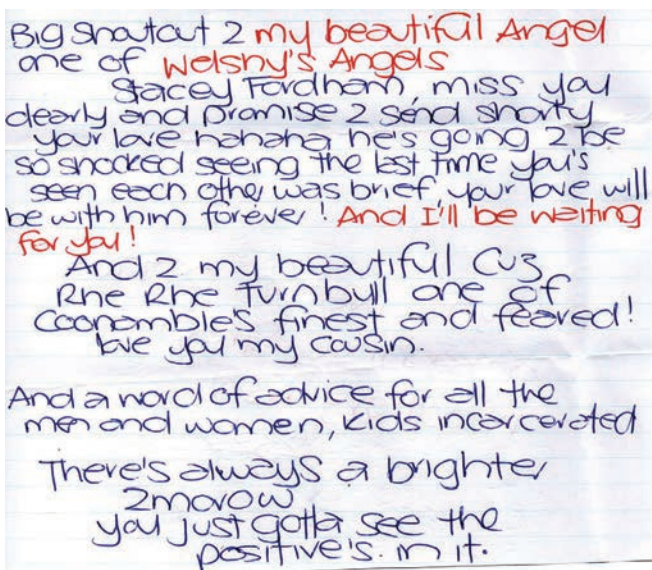 Big Shoutout 2 my beautiful Angel
one of Welshy's Angels
Stacey Fordham, miss you
dearly and promise 2 send shorty
your love hahaha he's going 2 be
so shocked seeing the last time you's
seen each other was brief, your love will
be with him forever! And I'll be waiting
for you!
And 2 my beautiful Cuz
Rhe Rhe Turnbull one of
Coonamble's finest and feared!
love you my cousin.
And a word of advice for all the
men and women, kids incarcerated
There's always a brighter
2morow
you just gotta see the
positive's in it.